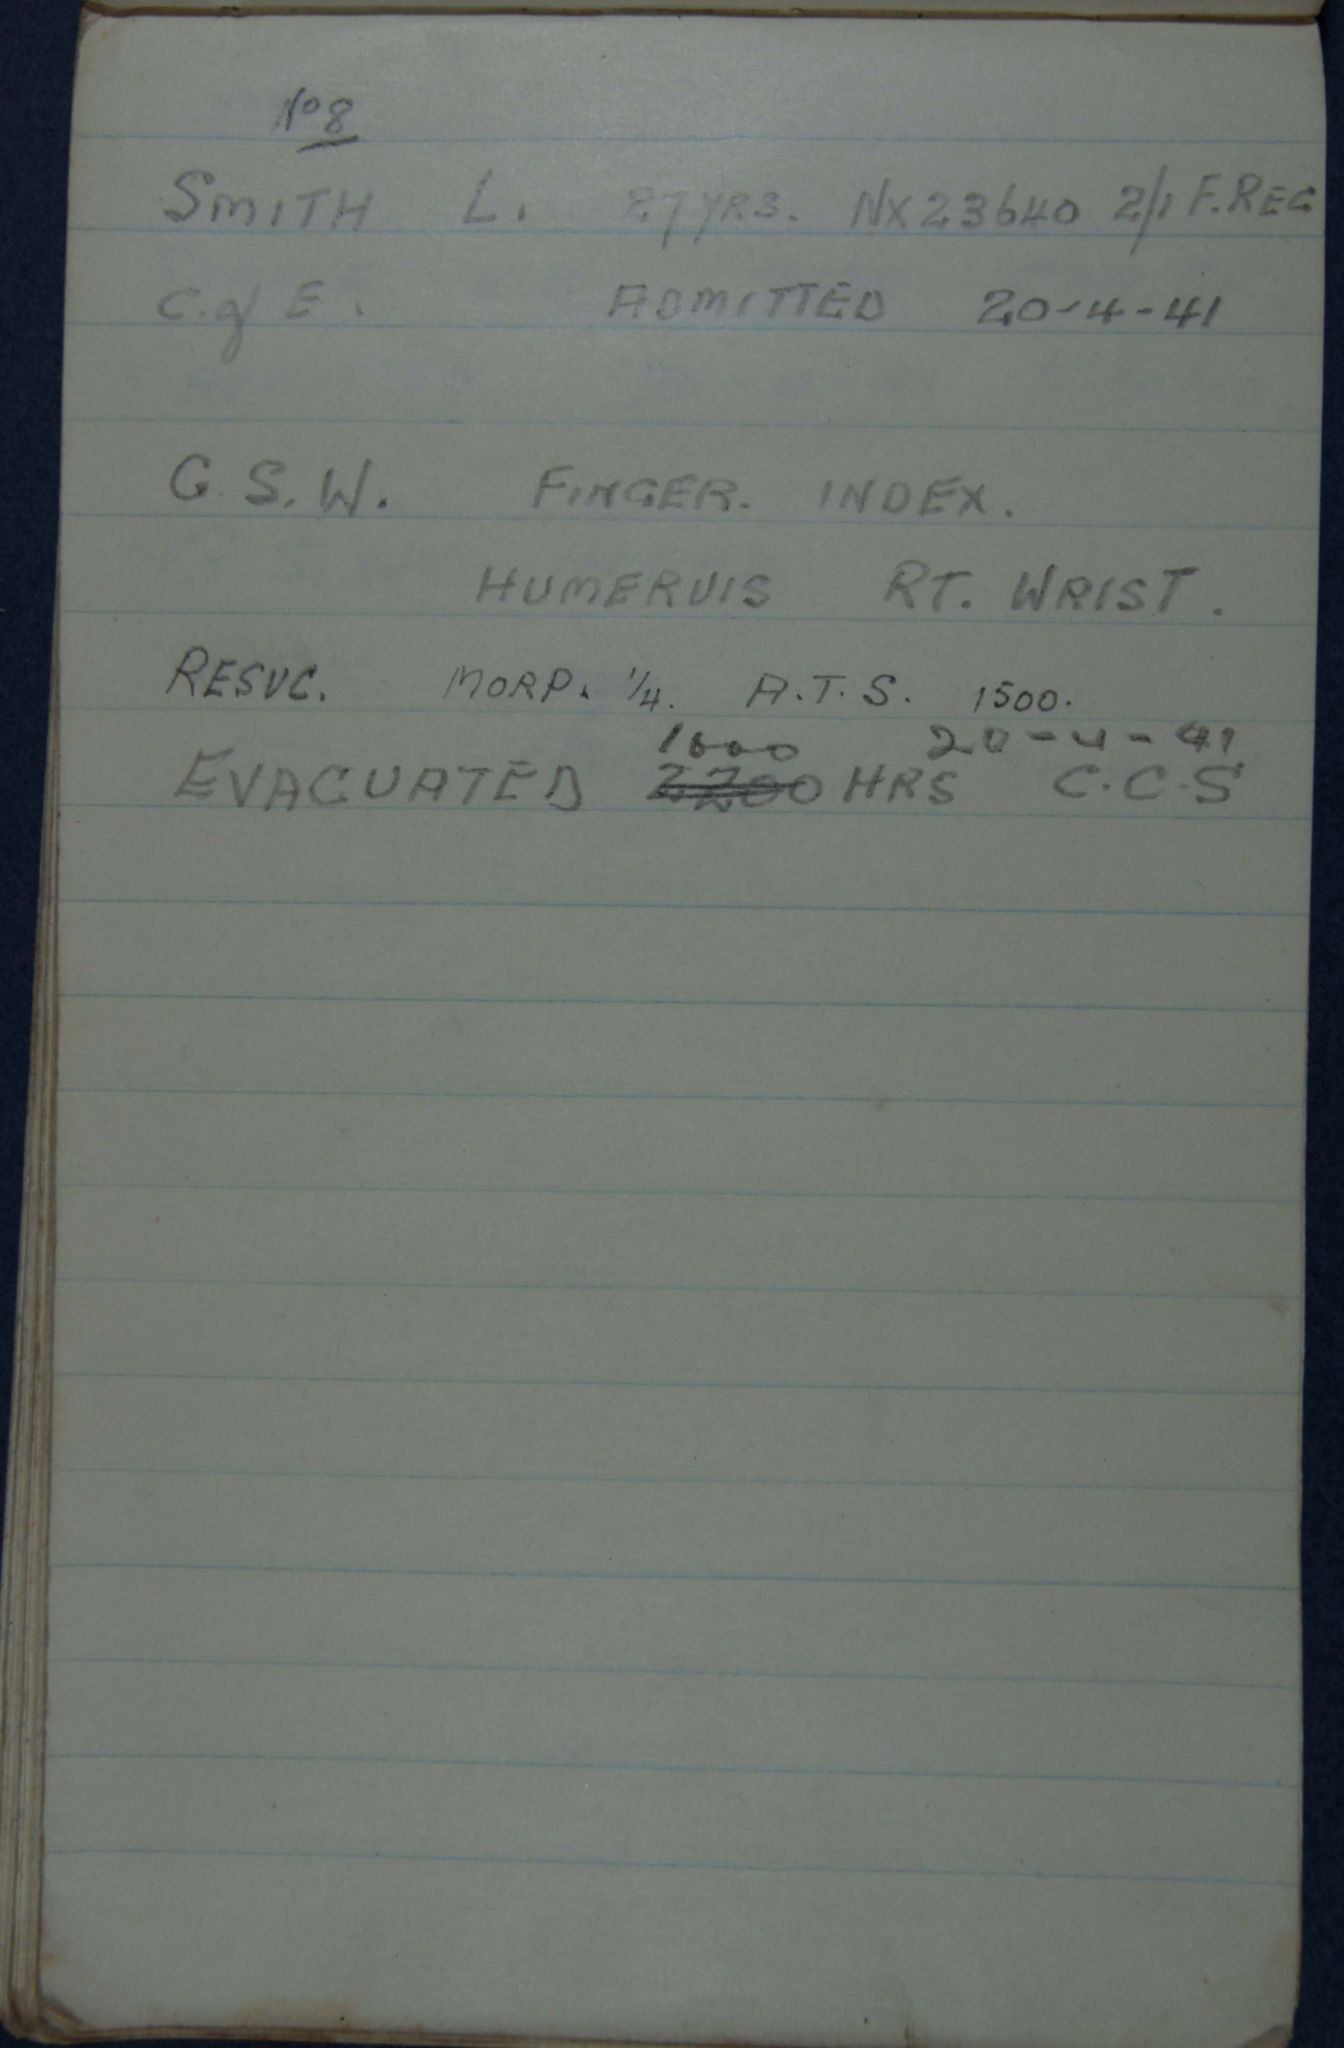 No 8
SMITH L. 27 YRS. NX23640 2/1 F. REG
C. of E. ADMITTED 20-4-41
G.S.W. FINGER. INDEX.
HUMERUIS RT. WRIST.
RESUC. MORP. 1/4. A.T.S. 1500.
1600 20-4-41
EVACUATED 2200 HRS C.C.S